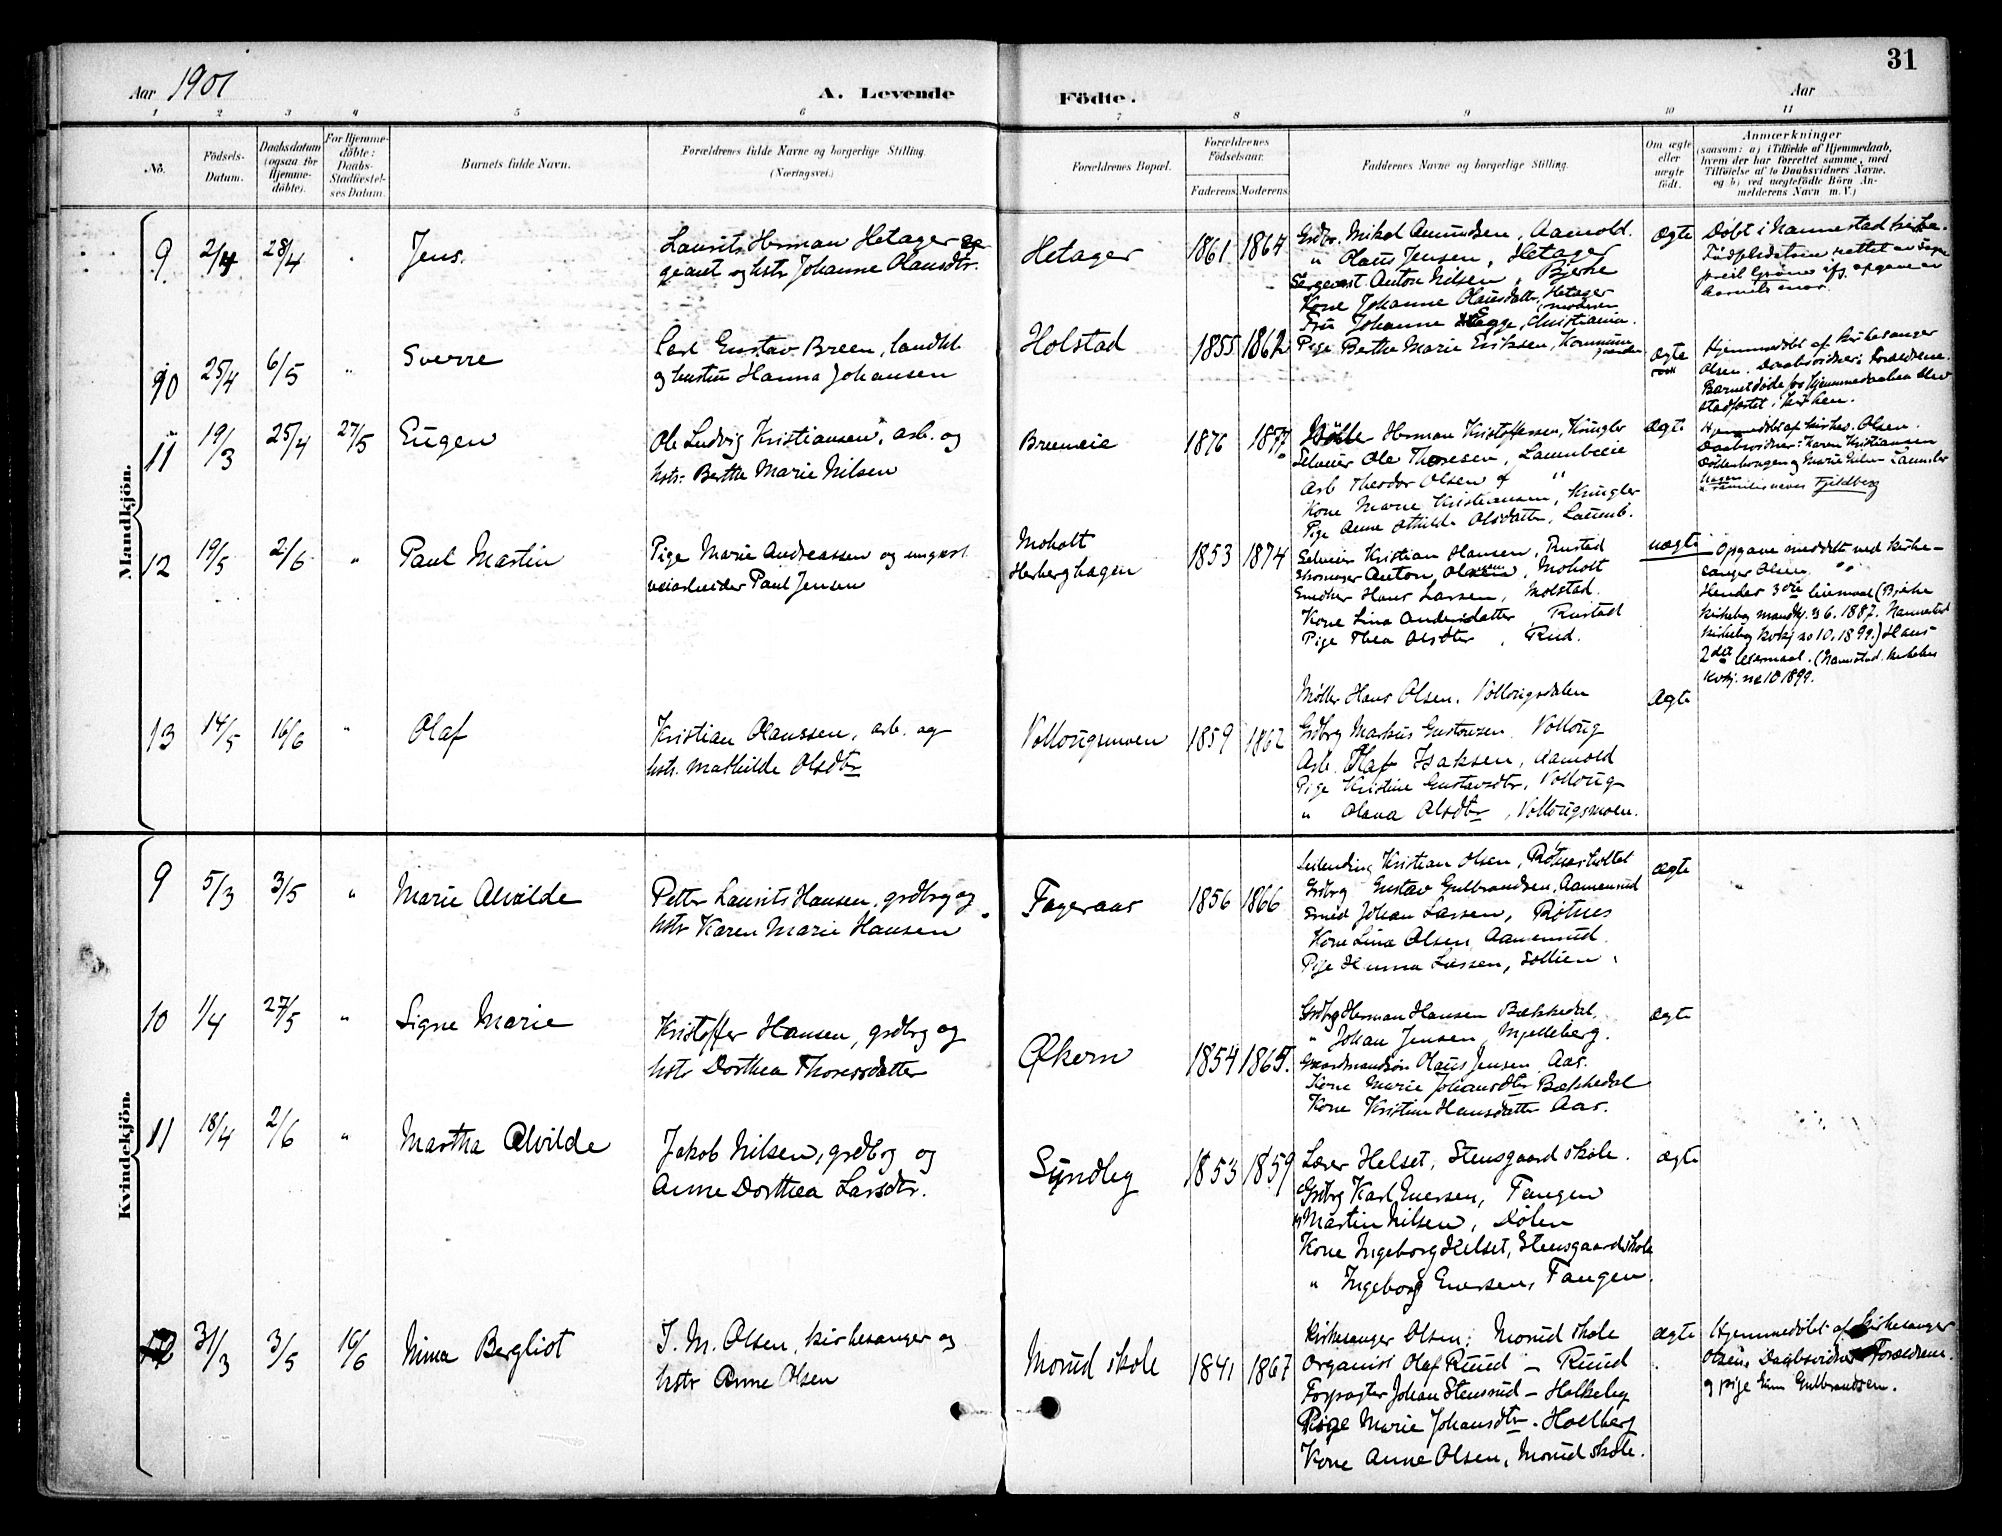 31
Aar 1901
A. Levende Födte.
Aar
1 2 3 4 5 6 7 8 9 10 11
No.
Födsels-Datum.
Daabsdatum (ogsaa for Hjemme-döbte).
For Hjemme-döbte: Daabs-Stadfæstel-ses Datum.
Barnets fulde Navn.
Forældrenes fulde Navne og borgerlige Stilling.
(Næringsvei.)
Forældrenes Bopæl.
Forældrenes Födselsaar.
Faderens. Moderens.
Faddernes Navne og borgerlige Stilling.
Om ægte eller uægte födt.
Anmærkninger
(saasom: a) i Tilfælde af Hjemmedaab,
hvem der har forrettet samme, med
Tilföielse af to Daabsvidners Navne,
og b) ved uægtefödte Börn An-
melderens Navn m. V.)
Mandkjön.
9 2/4 28/4 Jens.
Laurits Herman Hetager
og hstr Johanne Olausdtr.
Hetager 1861 1864
Grdbr. Mikal Amundsen, Aamold.
" Olaus Jensen, Hetager
Sergeant Anton Nilsen, Bjerke
Kone Johanne Olausdatter, Hetager
Fru Johanne Hegge, Christiania.
ægte
Døbt i Nannestad kirke.
10 25/4 6/5 " Sverre
Carl Gustav Breen, landh.
og hustru Hanna Johansen
Holstad 1855 1862
Pige Berthe Marie Eriksen,
ægte
Hjemmedøbt af kirkesanger
Olsen. Daabsvidner: Forældrene.
Barnet døde før hjemmedaaben blev
stadfæstet i kirken.
11 19/3 25/4 27/5 Eugen
Ole Ludvig Kristiansen, arb. og
hstr. Berthe Marie Nilsen
Breeneie 1876 1877
Herman Kristoffersen, Krugler
Selveier Ole Thoresen,
Arb Theodor Olsen "
Kone Marie Kristiansen, Krugler
Pige Anne Mthilde Olsdatter,
ægte
Hjemmedøbt af kirkes. Olsen.
Daabsvidner: Karen Kristiansen
og Marie Nilsen
Familienavn Fjeldberg
12 19/5 2/6 " Paul Martin
Pige Marie Andreassen og ungkarl
veiarbeider Paul Jensen
Moholt
Herberghagen
1853 1874
Selveier Kristian Hansen, Rustad
Skomager Anton Olsen, Moholt
Snedker Hans Larsen, Molstad.
Kone Lina Andersdatter, Rustad
Pige Thea Olsdtr, Rud.
uægte
Opgave meddelt ved kirke-
sanger Olsen.
Hendes 3die leiermaal (Bjerke
kirkebog mandkj. 36. 1887. Nannestad
kirkebog kvkj no 10. 1899.) Hans
2det leiermaal. (Nannestad kirkebog
kvkj. no 10 1899.
13 14/5 16/6 " Olaf
Kristian Olaussen, arb. og
hstr. Mathilde Olsdtr
Vollougsmoen 1859 1862
Møller Hans Olsen, Vollougsdalen
Grdbrg Markus Gustavsen Volloug
Arb. Olaf Isaksen, Aamold
Pige Kristine Gustavsdtr, Volloug
" Olava Olsdtr, Vollougsmoen.
Ægte
Kvindekjön.
9 5/3 3/5 " Marie Alvilde
Petter Laurits Hansen, grdbrg og
hstr Karen Marie Hansen
Fageraas 1856 1866
Kristian Olsen, Røtnesholtet
Grdbrg Gustav Gulbrandsen, Aamenrud
Smed Johan Larsen, Røtnes
Kone Lina Olsen Aamenrud.
Pige Hanna Larsen, Sollien.
ægte
10 1/4 27/5 " Signe Marie
Kristoffer Hansen, grdbrg og
hstr Dorthea Thoresdatter
Økern 1854 1865.
Grdbrg Herman Hansen Bækkedal,
" Johan Jensen, Mjelleberg.
Gaardmandsøn Olaus Jensen Aas.
Kone Marie Johansdtr Bækkedal
Kone Kristine Hansdatter Aas.
ægte
11 18/4 2/6 " Martha Alvilde
Jakob Nilsen, grdbrg og
Anne Dorthea Larsdtr.
Sundby 1853 1859
Lærer Helset, Stensgaard skole.
Grdbrg Karl Evensen, Tangen
" Martin Nilsen, Dølen
Kone Ingeborg Helset, Stensgaard skole
" Ingeborg Evensen, Tangen.
ægte
12 31/3 3/5 16/6 Mina Bergliot
J. M. Olsen, kirkesanger og
hstr Anne Olsen
Morud skole 1841 1867
Kirkesanger Olsen, Morud skole
Organist Olaf Ruud - Ruud
Forpagter Johan Stensrud - Holkeby
Pige Marie Johansdtr - Holberg
Kone Anne Olsen, Morud skole.
ægte
Hjemmedøbt af kirkesanger
Olsen. Daabsvidner Forældrene.
og pige Gulbrandsen.